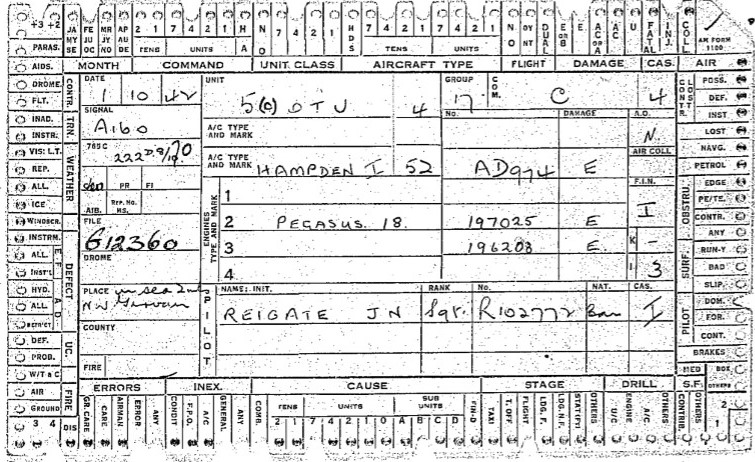 +3 +2 JA MY SE FE JU OC MR JY NO AP AU DE 2 1 7 4 2 1 H A NO 7 4 2 1 HDS 7 4 2 1 7 4 2 1 NO OY NT DUAL E OR B E AC OR A A/C U FATAL INJ. COLL AM FORM 1180
PARAS. TENS UNITS TENS UNITS
AIDS. MONTH COMMAND UNIT CLASS AIRCRAFT TYPE FLIGHT DAMAGE CAS. AIR
DROME. CONTR. DATE UNIT GROUP COM. CONTR. LOST POSS.
FLT. 1 10 42 5(C) OTU 4 17 C 4 DEF.
INAD. TRN. SIGNAL No. DAMAGE A.O. INST
INSTR. A160 A/C TYPE AND MARK N LOST
VIS: L.T. WEATHER 765C AIR COLL NAVG.
REP. 222D A/C TYPE AND MARK HAMPDEN I 52 AD974 E PETROL
ALL. PR FI F.I.N. OBSTRU. EDGE
ICE AIB. REP. No. MS. ENGINES TYPE AND MARK 1 I PE/TE.
WINDSCR. FILE 2 PEGASUS 18. 197025 E CONTR.
INSTRM. DEFECT G12360 3 196208 E. K - ANY
ALL. E. F. DROME 4 I 3 SURF. RUN-Y
INST'L BAD
HYD. A D PLACE in sea 2 mls PILOT NAME: INIT. RANK No. NAT. CAS. SLIP.
ALL. N.W Girvan REIGATE J N Sgt. R102772 Can I PILOT DOM.
DISTRICT COUNTY FOR.
DEF. UC. CONT.
PROB. FIRE BRAKES
W/T & C MED BOX
AIR FIRE ERRORS INEX. CAUSE STAGE DRILL S.F. OTHERS
GROUND GR. CARE CARE AIRMAN ERROR ANY CONDIT F.P.O. A/C GENERAL ANY CORR. TENS UNITS SUB UNITS FIN-D TAXI T. OFF FLIGHT LDG. F. LDG. N.F. STAT(PI) OTHERS U/C ENGINE A/C OTHERS CONTRIB. 2
3 4 DIS 2 1 7 4 2 1 0 A B C D 1